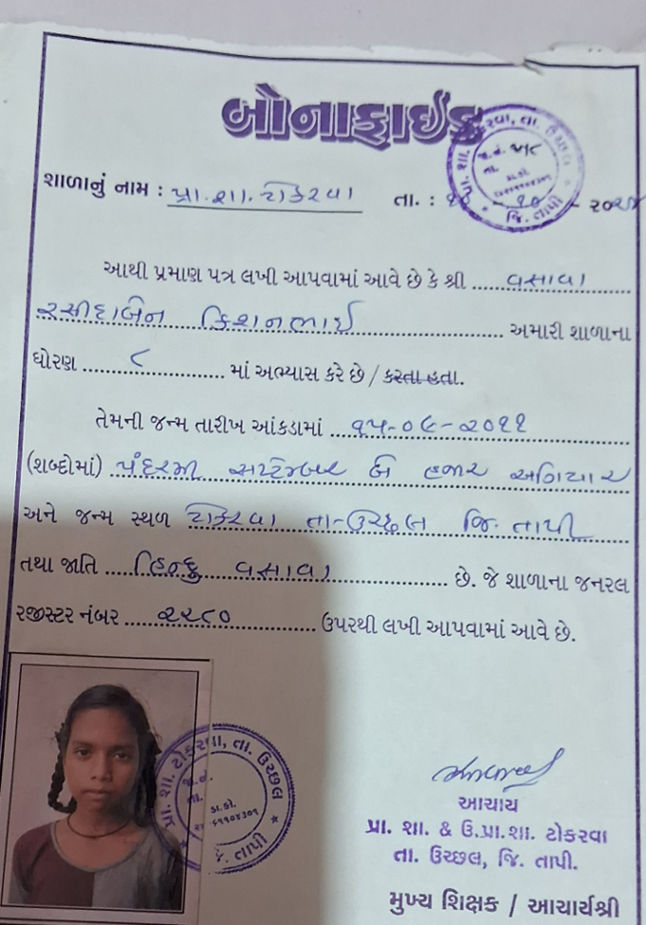 બોનાફાઈડ
શાળાનું નામ : પ્રા.શા.ટોકરવા તા. : ૧૦ - ૨૦૨૪
આથી પ્રમાણ પત્ર લખી આપવામાં આવે છે કે શ્રી વસાવા
રસીદાબેન કિશનભાઈ અમારી શાળાના
ધોરણ ૮ માં અભ્યાસ કરે છે / કરતા હતા.
તેમની જન્મ તારીખ આંકડામાં ૧૫-૦૯-૨૦૧૧
(શબ્દોમાં) પંદરમી સપ્ટેમ્બર બે હજાર અગિયાર
અને જન્મ સ્થળ ટોકરવા તા-ઉચ્છલ જિ. તાપી
તથા જાતિ હિન્દુ વસાવા છે. જે શાળાના જનરલ
રજીસ્ટર નંબર ૨૨૮૦ ઉપરથી લખી આપવામાં આવે છે.
પ્રા. શા. ટોકરવા, તા. ઉચ્છલ
જિ. તાપી
આચાર્ય
પ્રા. શા. & ઉ.પ્રા.શા. ટોકરવા
તા. ઉચ્છલ, જિ. તાપી.
મુખ્ય શિક્ષક / આચાર્યશ્રી